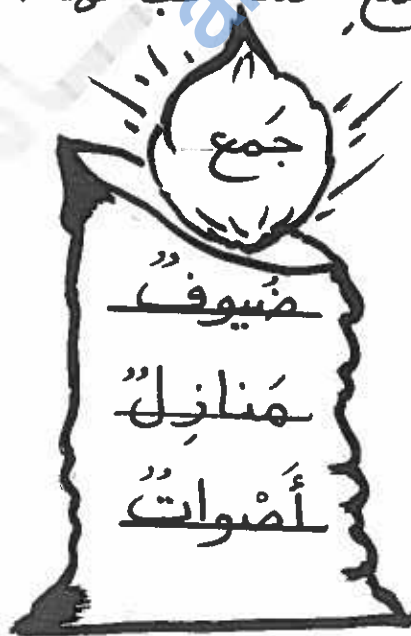 جَمع
ضُيوفٌ
مَنازِلٌ
أَصْواتٌ